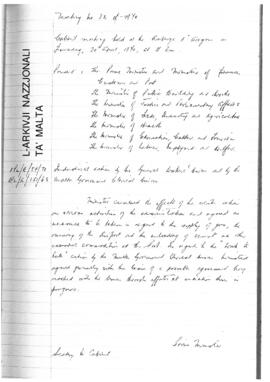 Meeting No 32 of 1970
Cabinet meeting held at the Auberge d'Aragon on
Thursday, 30 April, 1970, at 5 pm
Present : The Prime Minister and Minister of Finance,
Customs and Port
The Minister of Public Building and Works
The Minister of Justice and Parliamentary Affairs
The Minister of Trade, Industry and Agriculture
The Minister of Health
The Minister of Education, Culture and Tourism
The Minister of Labour, Employment and Welfare
L-ARKIVJI NAZZJONALI
TA' MALTA
Industrial action by the General Workers' Union and by the
Malta Government Clerical Union
Ministers considered the effects of the action
on various activities of the administration and agreed on
measures to be taken in regard to the supply of gas, the
running of the Airport and the unloading of cement and other
essential commodities at the Port. In regard to the "work to
rule" action by the Malta Government Clerical Union Ministers
agreed generally with the terms of a possible agreement being
reached with the Union through efforts at mediation then in
progress.
Prime Minister
Secretary to Cabinet